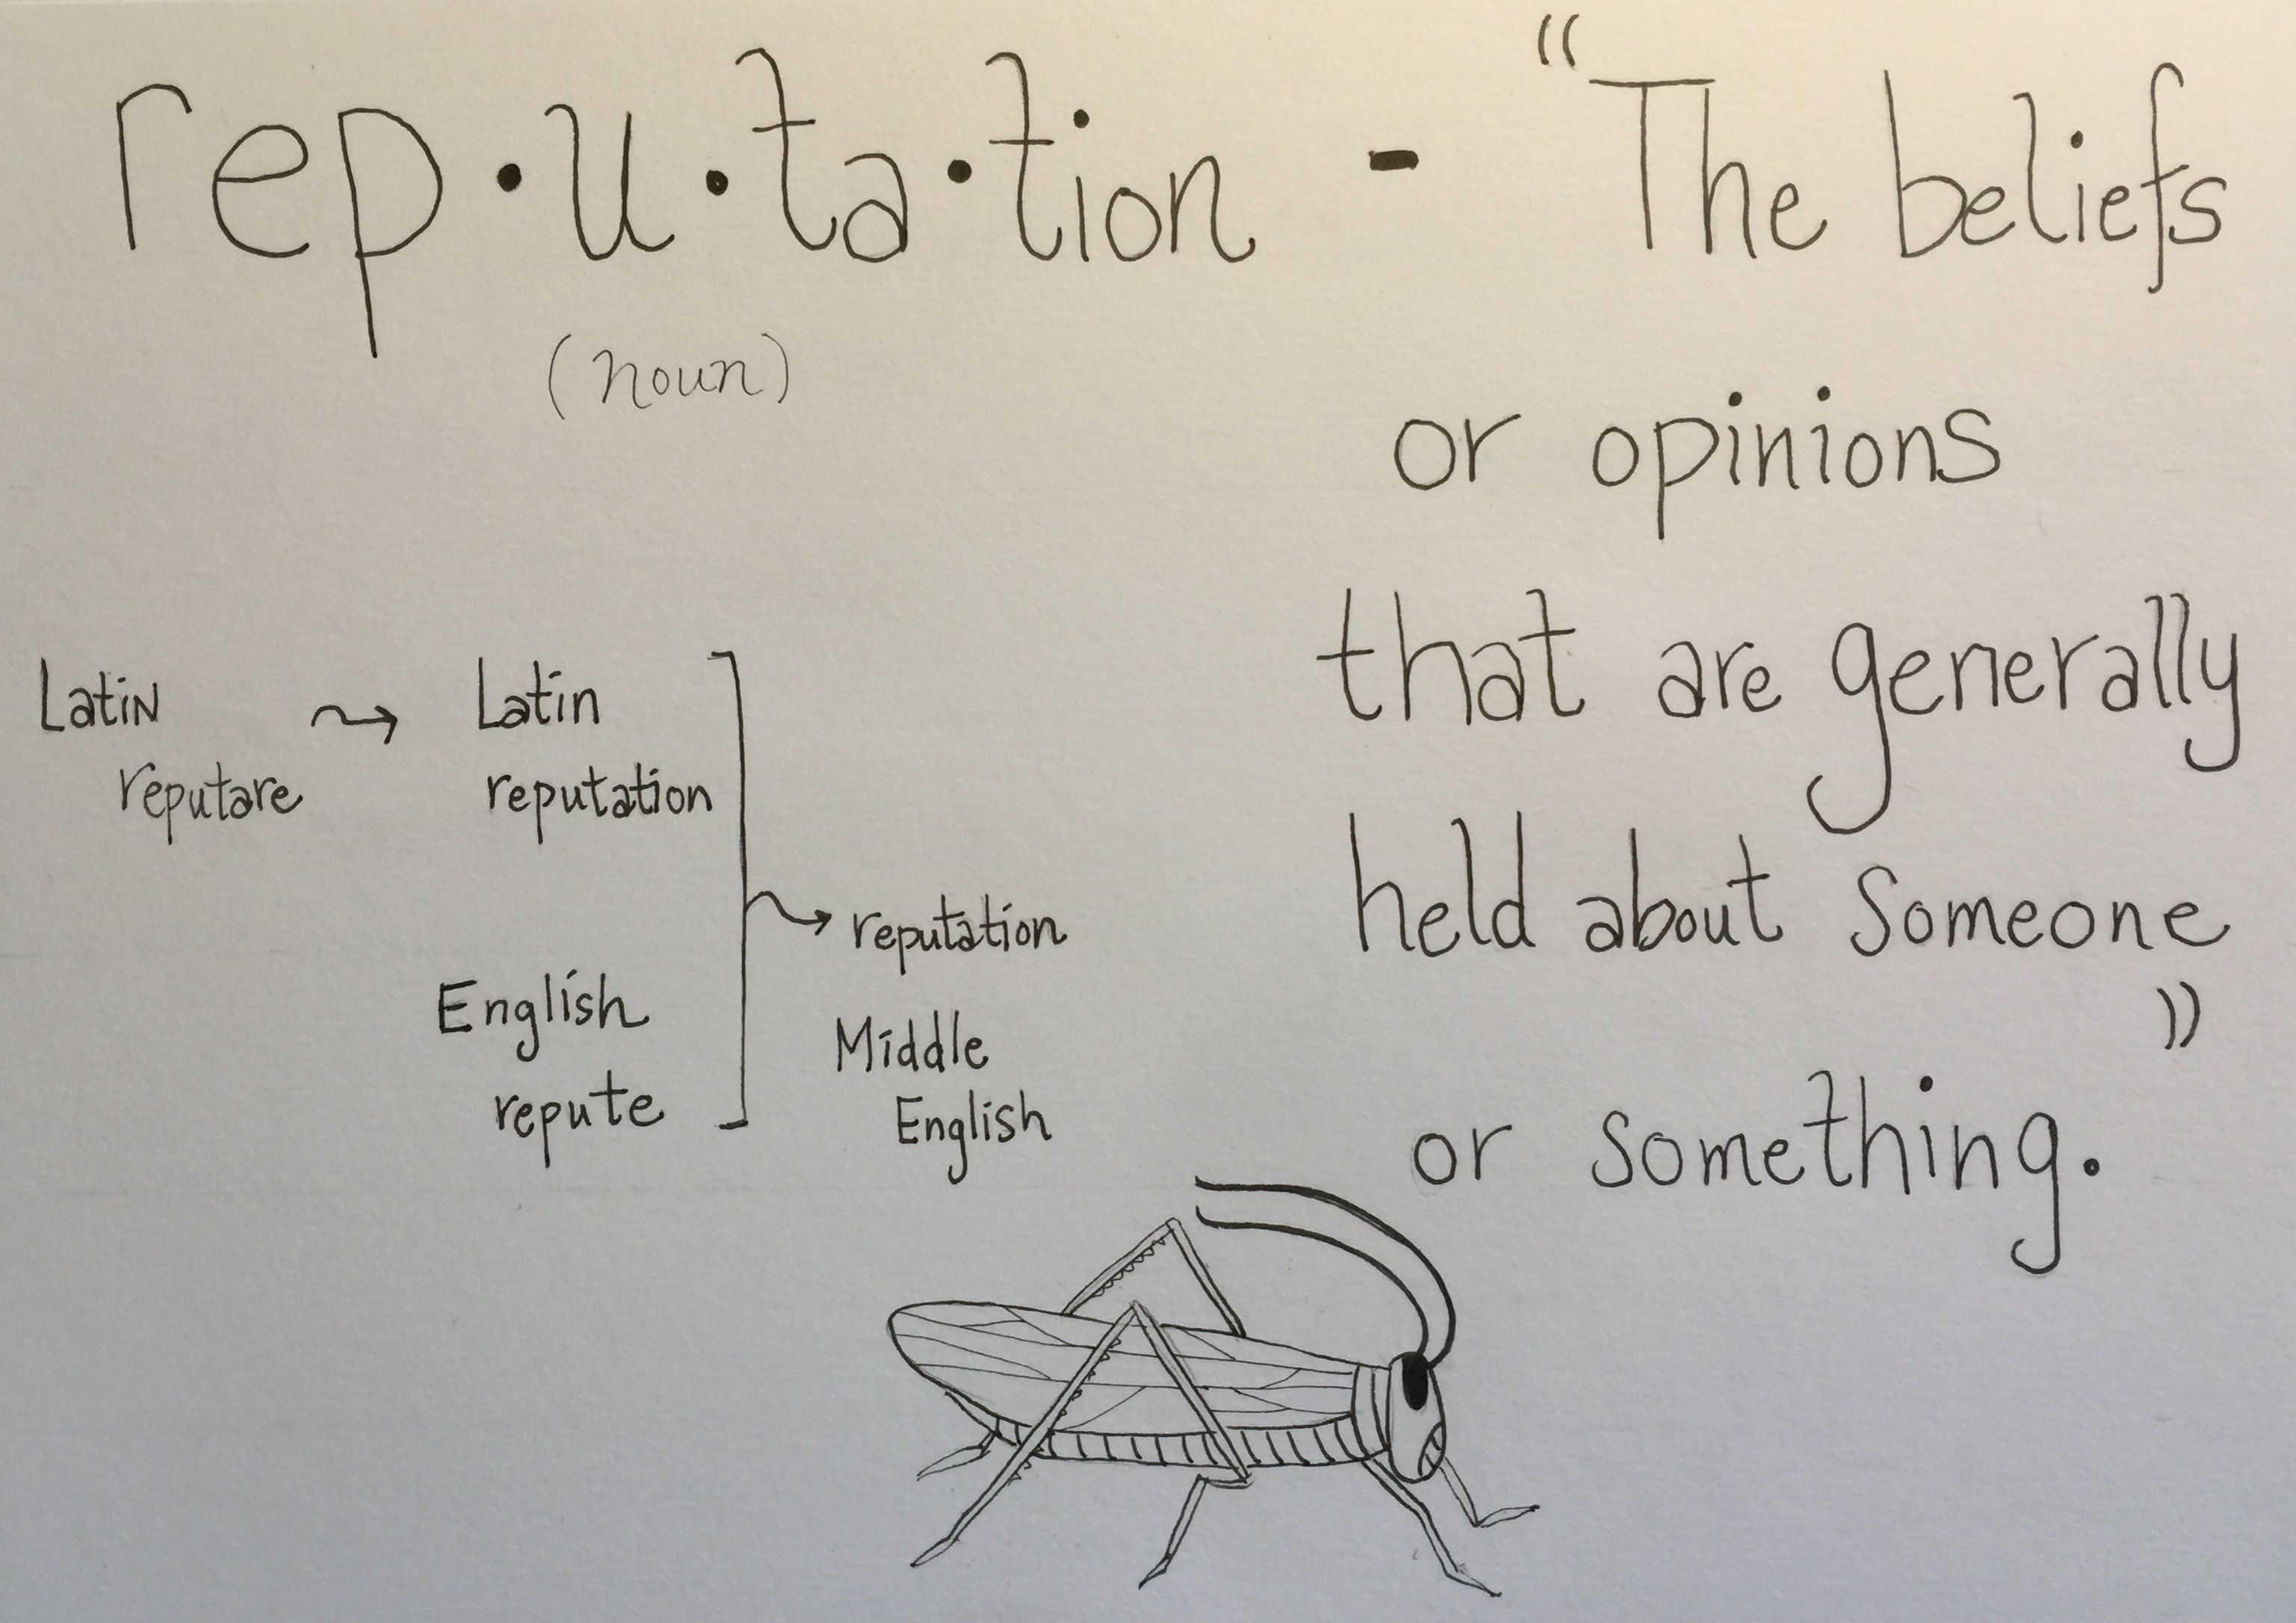 rep·u·ta·tion - "The beliefs
(noun)
or opinions
that are generally
held about someone
or something."
Latin
reputare
Latin
reputation
English
repute
reputation
Middle
English